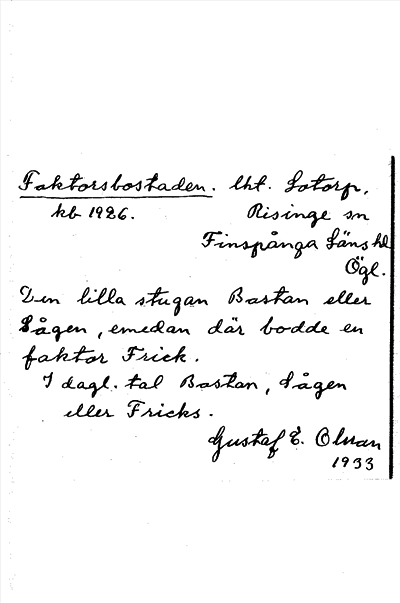 Faktorsbostaden. lht. Lotorp,
kb 1926. Risinge sn
Finspånga Läns hd
Ögl.
Den lilla stugan Bastan eller
Sågen, emedan där bodde en
faktor Frick.
I dagl. tal Bastan, Sågen
eller Fricks.
Gustaf E. Olman
1933